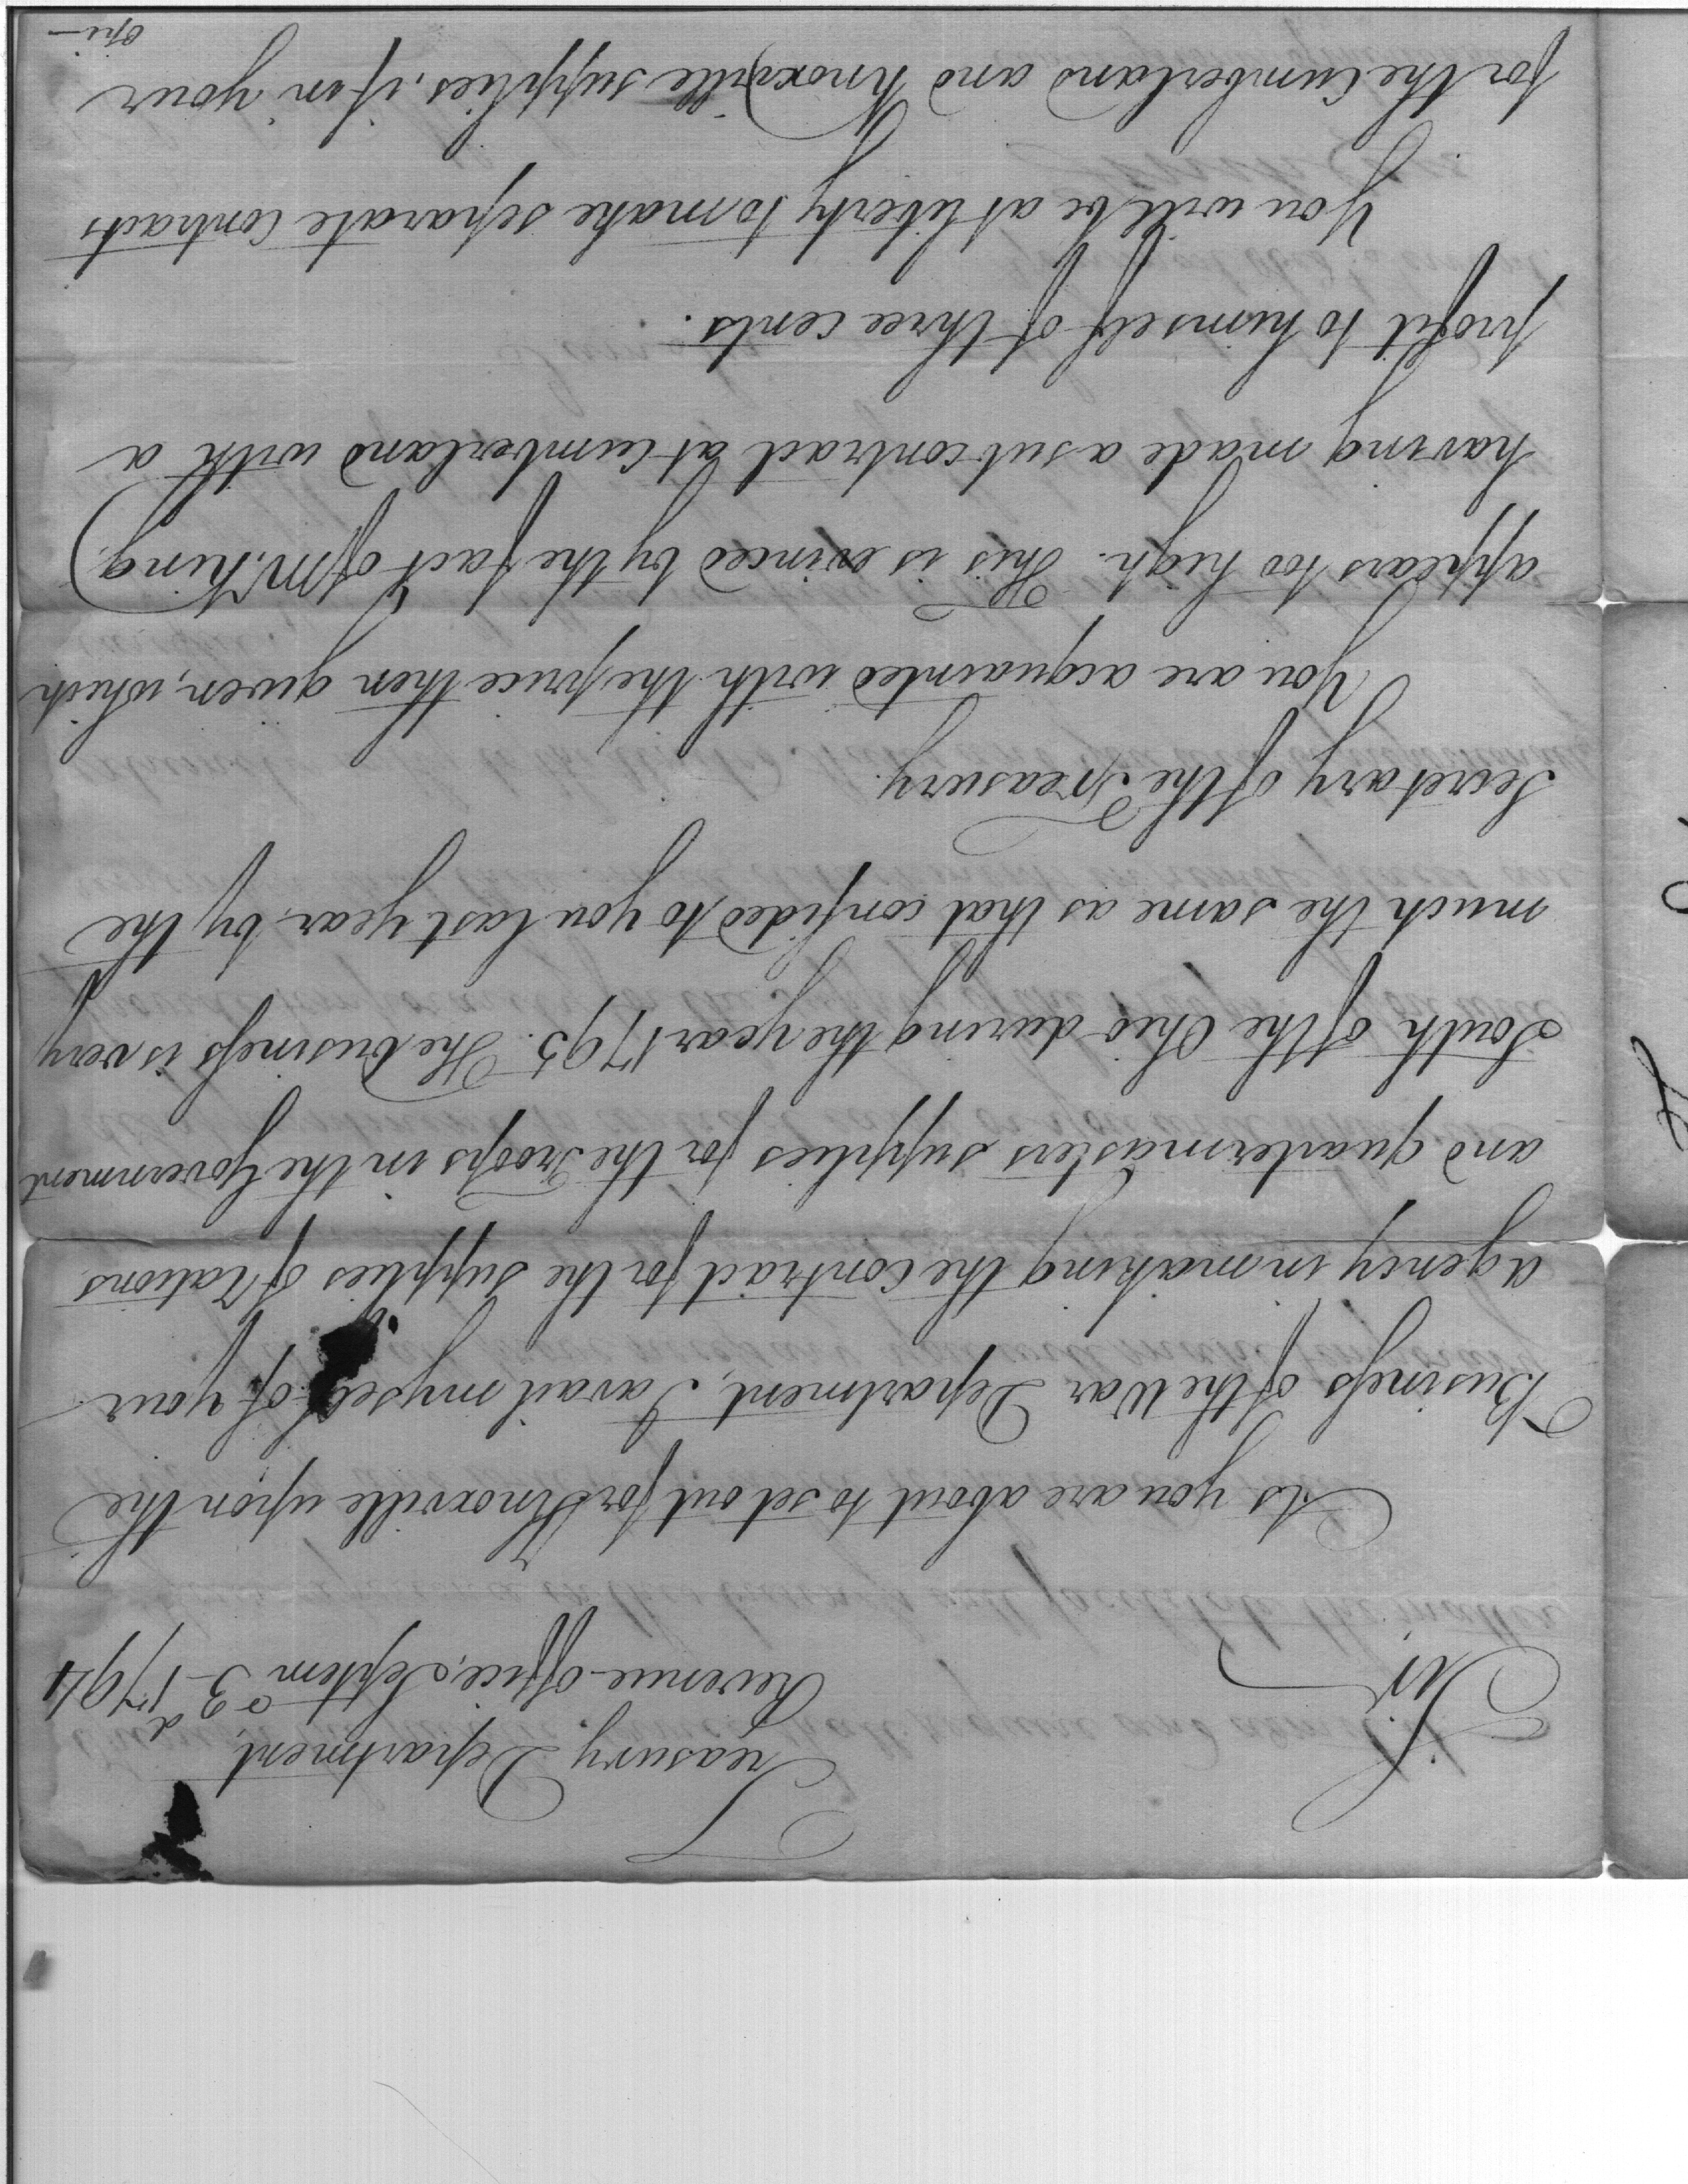 Treasury Department,
Revenue-office, Septem 3d 1794
Sir,
As you are about to set out for Knoxville upon the
Business of the War Department, I avail myself of your
agency in making the Contract for the supplies of Rations
and quartermasters supplies for the Troops in the Government
South of the Ohio during the year 1795. The business is very
much the same as that confided to you last year, by the
Secretary of the Treasury.
You are acquainted with the price then given, which
appears too high. This is evinced by the fact of Mr. King
having made a sub contract at Cumberland with a
profit to himself of three cents.
You will be at liberty to make separate Contracts
for the Cumberland and Knoxville supplies, if in your
opi—